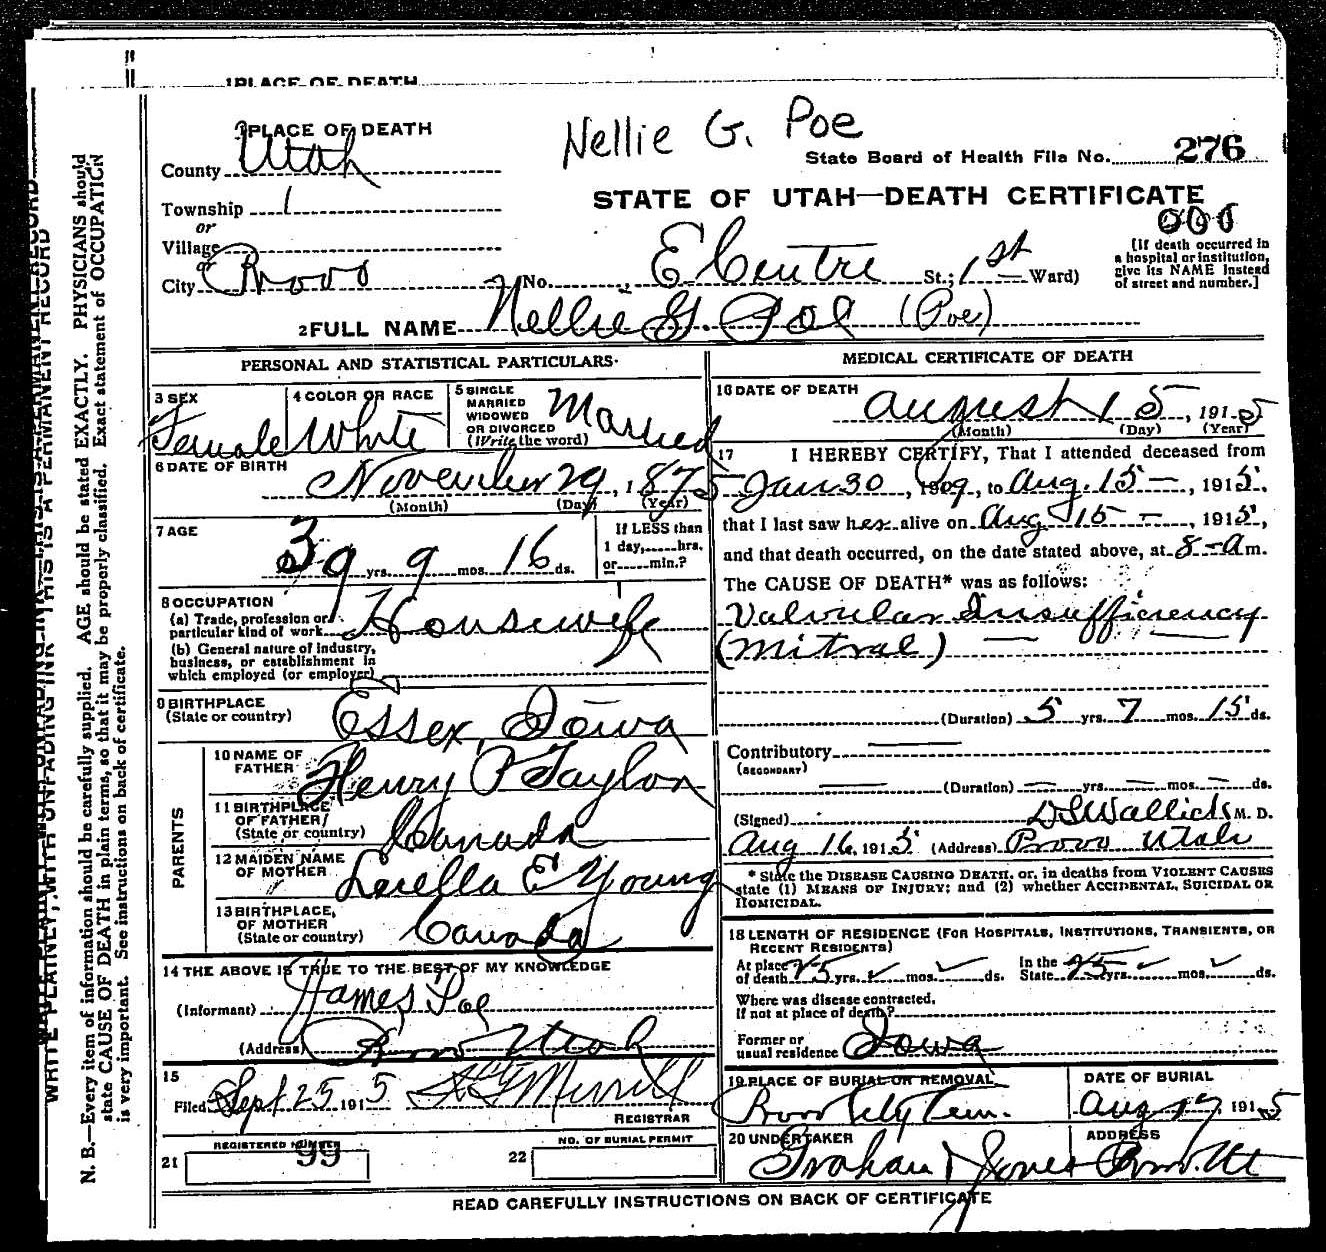 1 PLACE OF DEATH
1 PLACE OF DEATH
Nellie G. Poe
County Utah
State Board of Health File No. 276
Township 1
STATE OF UTAH—DEATH CERTIFICATE
or
000
Village
or
City Provo
No. E Centre St.; 1st Ward)
[If death occurred in
a hospital or institution,
give its NAME instead
of street and number.]
2 FULL NAME Nellie G. Poe (Poe)
PERSONAL AND STATISTICAL PARTICULARS
3 SEX
Female
4 COLOR OR RACE
White
5 SINGLE
MARRIED
WIDOWED
OR DIVORCED
(Write the word)
Married
6 DATE OF BIRTH
November 29, 1875
(Month) (Day) (Year)
7 AGE
39 yrs. 9 mos. 16 ds.
If LESS than
1 day,......hrs.
or......min.?
8 OCCUPATION
(a) Trade, profession or
particular kind of work Housewife
(b) General nature of industry,
business, or establishment in
which employed (or employer)
9 BIRTHPLACE
(State or country)
Essex, Iowa
PARENTS
10 NAME OF
FATHER
Henry P Taylor
11 BIRTHPLACE
OF FATHER
(State or country)
Canada
12 MAIDEN NAME
OF MOTHER
Luella E Young
13 BIRTHPLACE,
OF MOTHER
(State or country)
Canada
14 THE ABOVE IS TRUE TO THE BEST OF MY KNOWLEDGE
(Informant) James Poe
(Address) Provo Utah
15
Filed Sept 25 1915 Merrill
REGISTRAR
21 REGISTERED NUMBER
99
22 NO. OF BURIAL PERMIT
MEDICAL CERTIFICATE OF DEATH
16 DATE OF DEATH
August 15, 1915
(Month) (Day) (Year)
17 I HEREBY CERTIFY, That I attended deceased from
Jan 30, 1909, to Aug. 15—, 1915,
that I last saw her alive on Aug 15—, 1915,
and that death occurred, on the date stated above, at 8-a m.
The CAUSE OF DEATH* was as follows:
Valvular Insufficiency
(Mitral)
(Duration) 5 yrs. 7 mos. 15 ds.
Contributory
(SECONDARY)
(Duration) — yrs. — mos. — ds.
(Signed) D S Wallich M. D.
Aug 16, 1915 (Address) Provo Utah
* State the DISEASE CAUSING DEATH, or, in deaths from VIOLENT CAUSES
state (1) MEANS OF INJURY; and (2) whether ACCIDENTAL, SUICIDAL OR
HOMICIDAL.
18 LENGTH OF RESIDENCE (FOR HOSPITALS, INSTITUTIONS, TRANSIENTS, OR
RECENT RESIDENTS)
At place
of death 25 yrs. mos. ds.
In the
State 25 yrs. mos. ds.
Where was disease contracted,
if not at place of death?
Former or
usual residence Iowa
19 PLACE OF BURIAL OR REMOVAL
Provo City Cem.
DATE OF BURIAL
Aug 17 1915
20 UNDERTAKER
Graham Jones
ADDRESS
Provo. Ut
READ CAREFULLY INSTRUCTIONS ON BACK OF CERTIFICATE
WRITE PLAINLY, WITH UNFADING INK—THIS IS A PERMANENT RECORD
N. B.—Every item of information should be carefully supplied. AGE should be stated EXACTLY. PHYSICIANS should
state CAUSE OF DEATH in plain terms, so that it may be properly classified. Exact statement of OCCUPATION
is very important. See instructions on back of certificate.